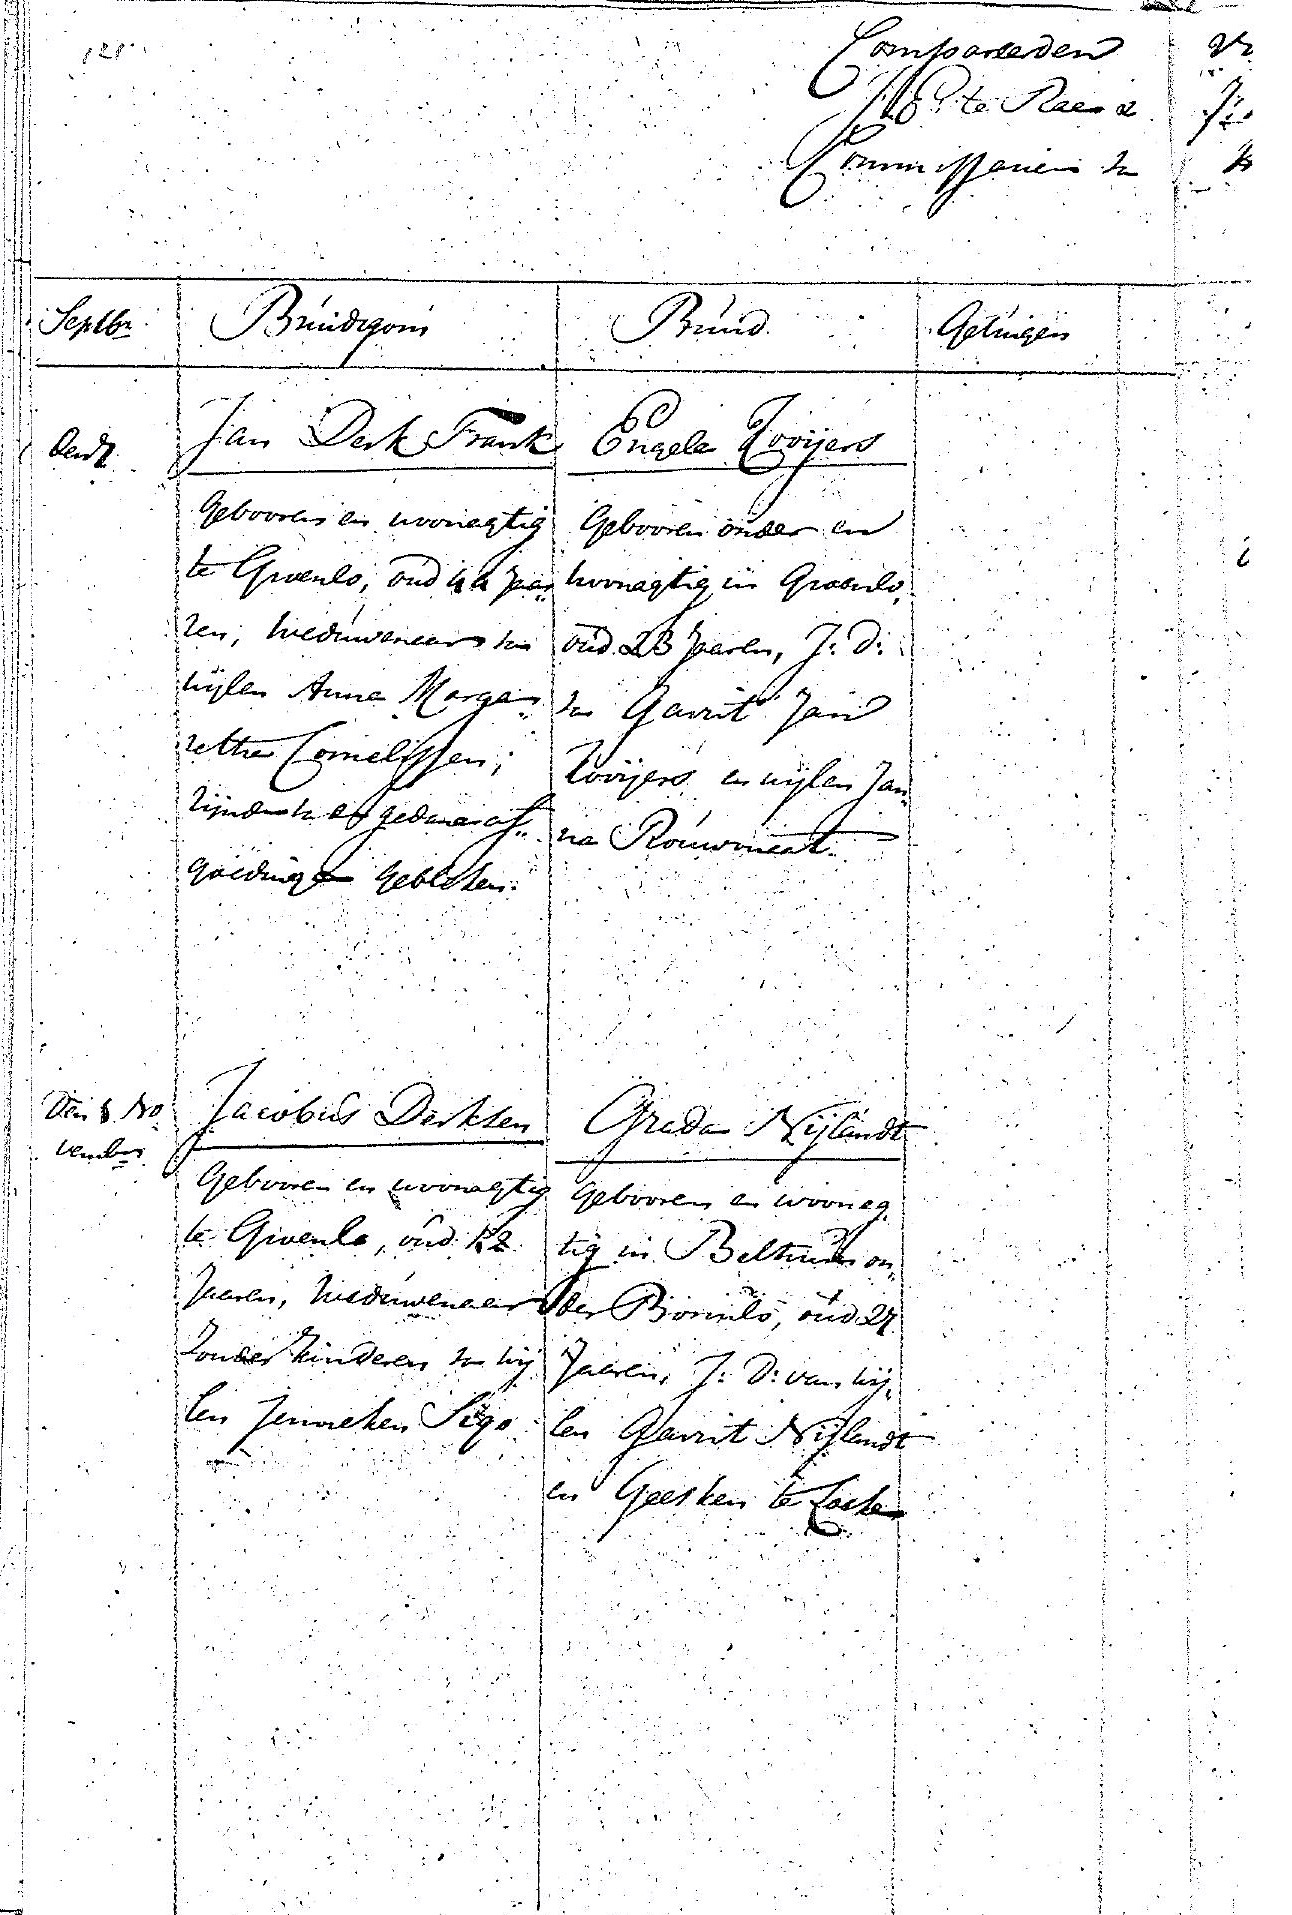 121
Compareerden
te Raesz
Commissarien van
Septbr
Bruidegom
Bruid
Getuigen
Den 7
Jan Derk Frank
Gebooren en woonagtig
te Groenlo, oud 44 Jaa„
ren, Weduwenaar van
wijlen Anna Marga„
retha Cornelissen;
zijnde van er gedaane af„
goedinge gebleken.
Engele Zooijers
Gebooren onder en
woonagtig in Groenlo,
oud 23 Jaaren, J: D:
van Garrit Jan
Zooijers en wijlen Jan„
na Rouwenest.
Den 8 No„
vember
Jacobus Derksen
Gebooren en woonagtig
te Groenlo, oud 52
Jaaren, Weduwenaar
zonder kinderen van wij
len Jenneken Sigo
Greda Nijlandt
Gebooren en woonag„
tig in Beltrum on„
der Borculo, oud 27
Jaaren, J: D: van wij„
len Garrit Nijlandt
en Geesken te Loeke